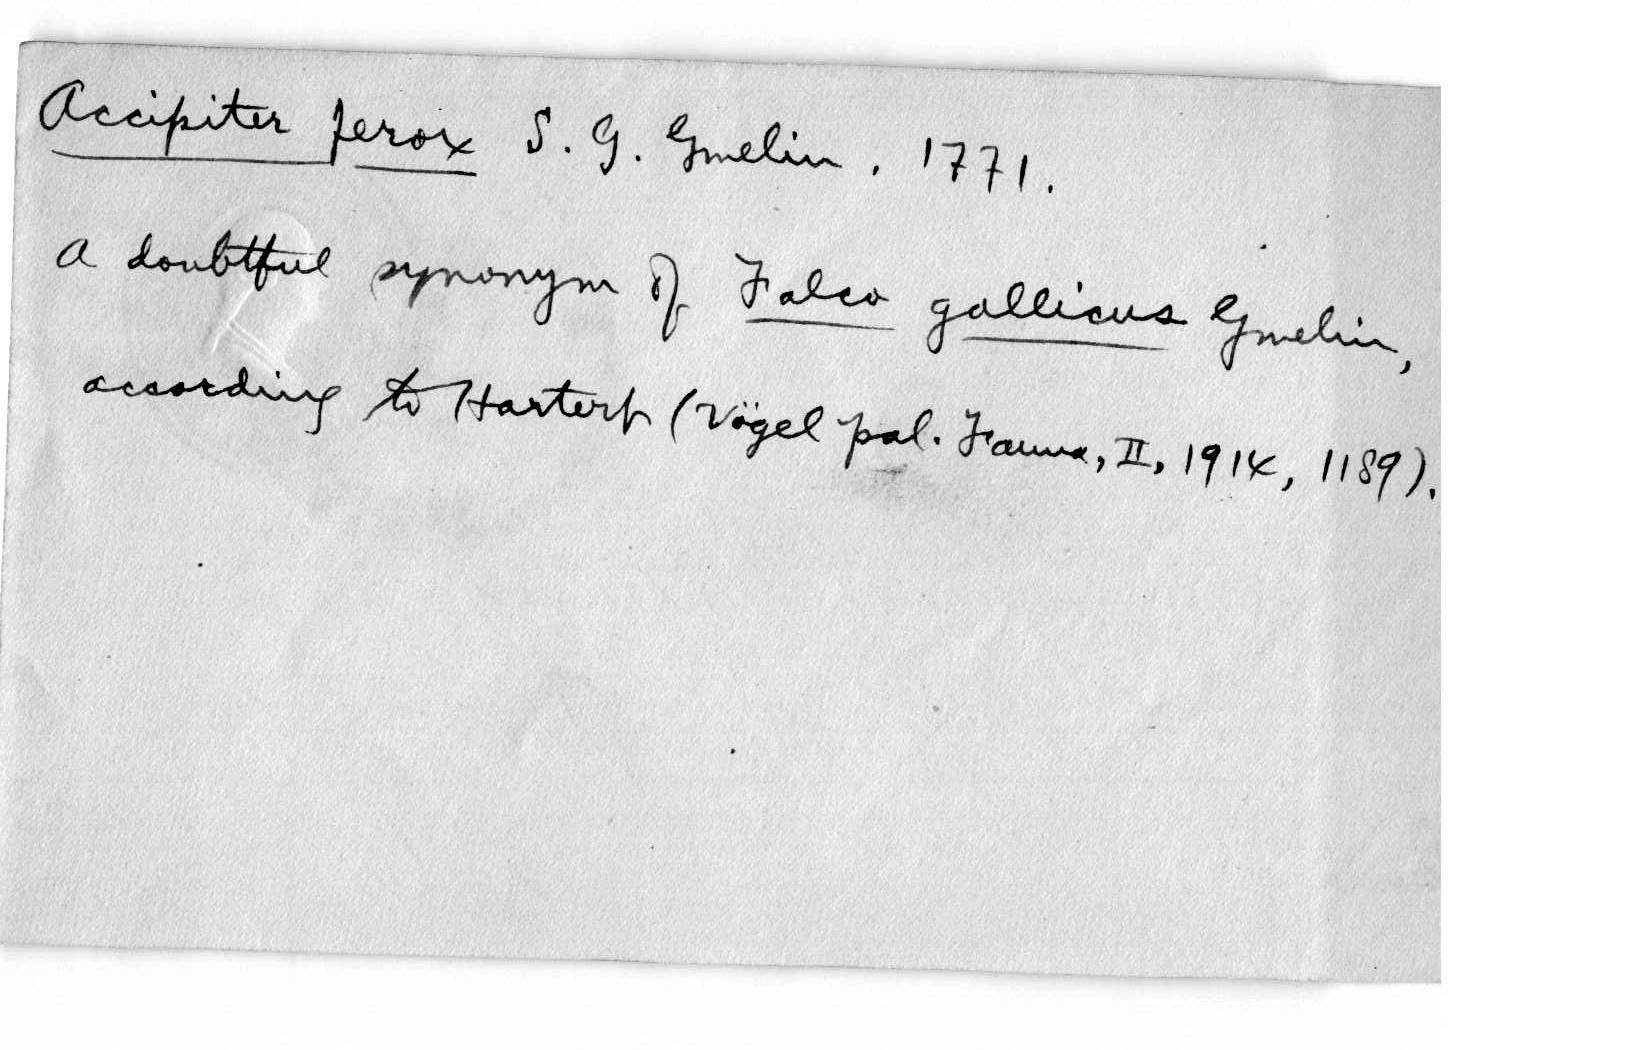 Accipiter ferox S. G. Gmelin, 1771.
A doubtful synonym of Falco gallicus Gmelin,
according to Hartert (Vögel pal. Fauna, II, 1914, 1189).